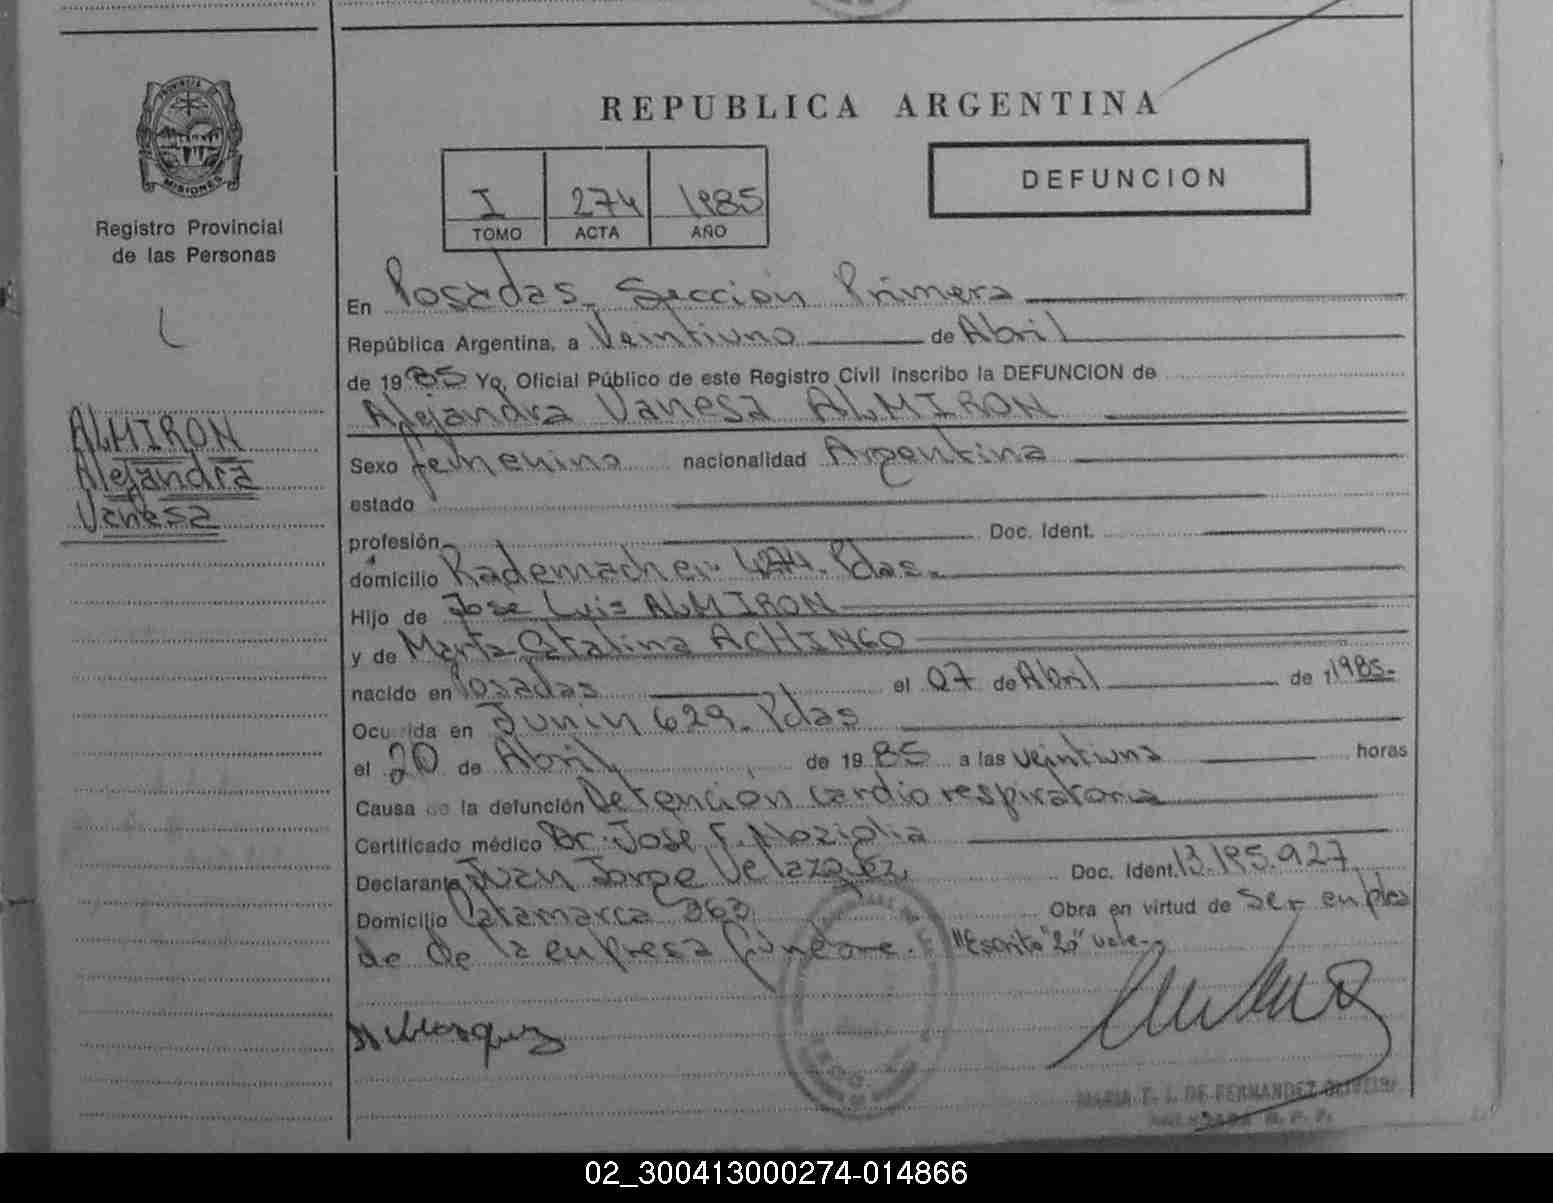 PROVINCIA
MISIONES
Registro Provincial
de las Personas
ALMIRON
Alejandra
Vanesa
REPUBLICA ARGENTINA
I 274 1985
TOMO ACTA AÑO
DEFUNCION
En Posadas, Sección Primera
República Argentina, a Veintiuno de Abril
de 1985 Yo, Oficial Público de este Registro Civil inscribo la DEFUNCION de
Alejandra Vanesa ALMIRON
Sexo femenino nacionalidad Argentina
estado
profesión Doc. Ident.
domicilio Rademacher 474. Pdas.
Hijo de Jose Luis ALMIRON
y de Marta Catalina ACHINGO
nacido en Posadas el 07 de Abril de 1985.-
Ocurrida en Junin 629. Pdas
el 20 de Abril de 1985 a las veintiuna horas
Causa de la defunción Detencion cardio respiratoria
Certificado médico Dr. Jose F.
Declarante Juan Jorge Velazquez, Doc. Ident. 13.195.927
Domicilio Catamarca 363 Obra en virtud de ser emplea
do de la empresa fúnebre. "Escrito "20" vale-
MARIA T. I. DE FERNANDEZ OLIVEIRA
02_300413000274-014866